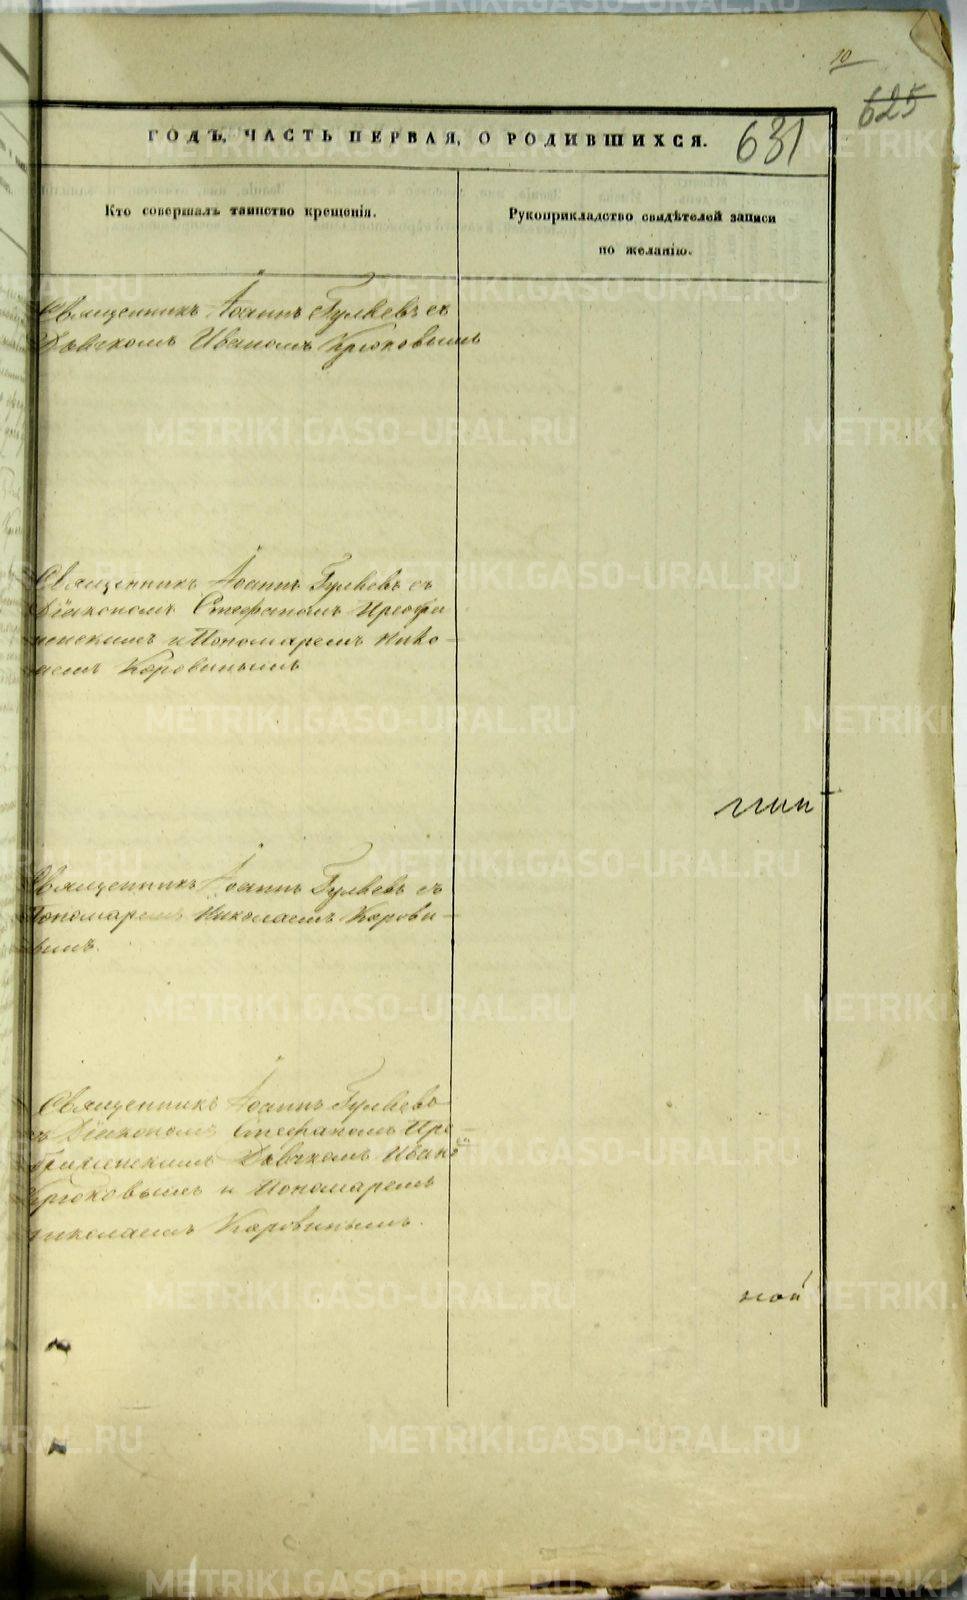 10
625
ГОДЪ, ЧАСТЬ ПЕРВАЯ, О РОДИВШИХСЯ.
631
Кто совершалъ таинство крещенія.
Рукоприкладство свидѣтелей записи
по желанію.
Священникъ Іоаннъ Гуляевъ съ
Дьячкомъ Иваномъ Крюковымъ
Священникъ Іоаннъ Гуляевъ съ
Діакономъ Стефаномъ Преобра
женскимъ и Пономаремъ Нико-
лаемъ Коровинымъ
Священникъ Іоаннъ Гуляевъ съ
Пономаремъ Николаемъ Корови-
нымъ.
Священникъ Іоаннъ Гуляевъ
съ Діакономъ Стефаномъ Прео-
браженскимъ Дьячкомъ Иваномъ
Крюковымъ и Пономаремъ
Николаемъ Коровинымъ.
METRIKI.GASO-URAL.RU